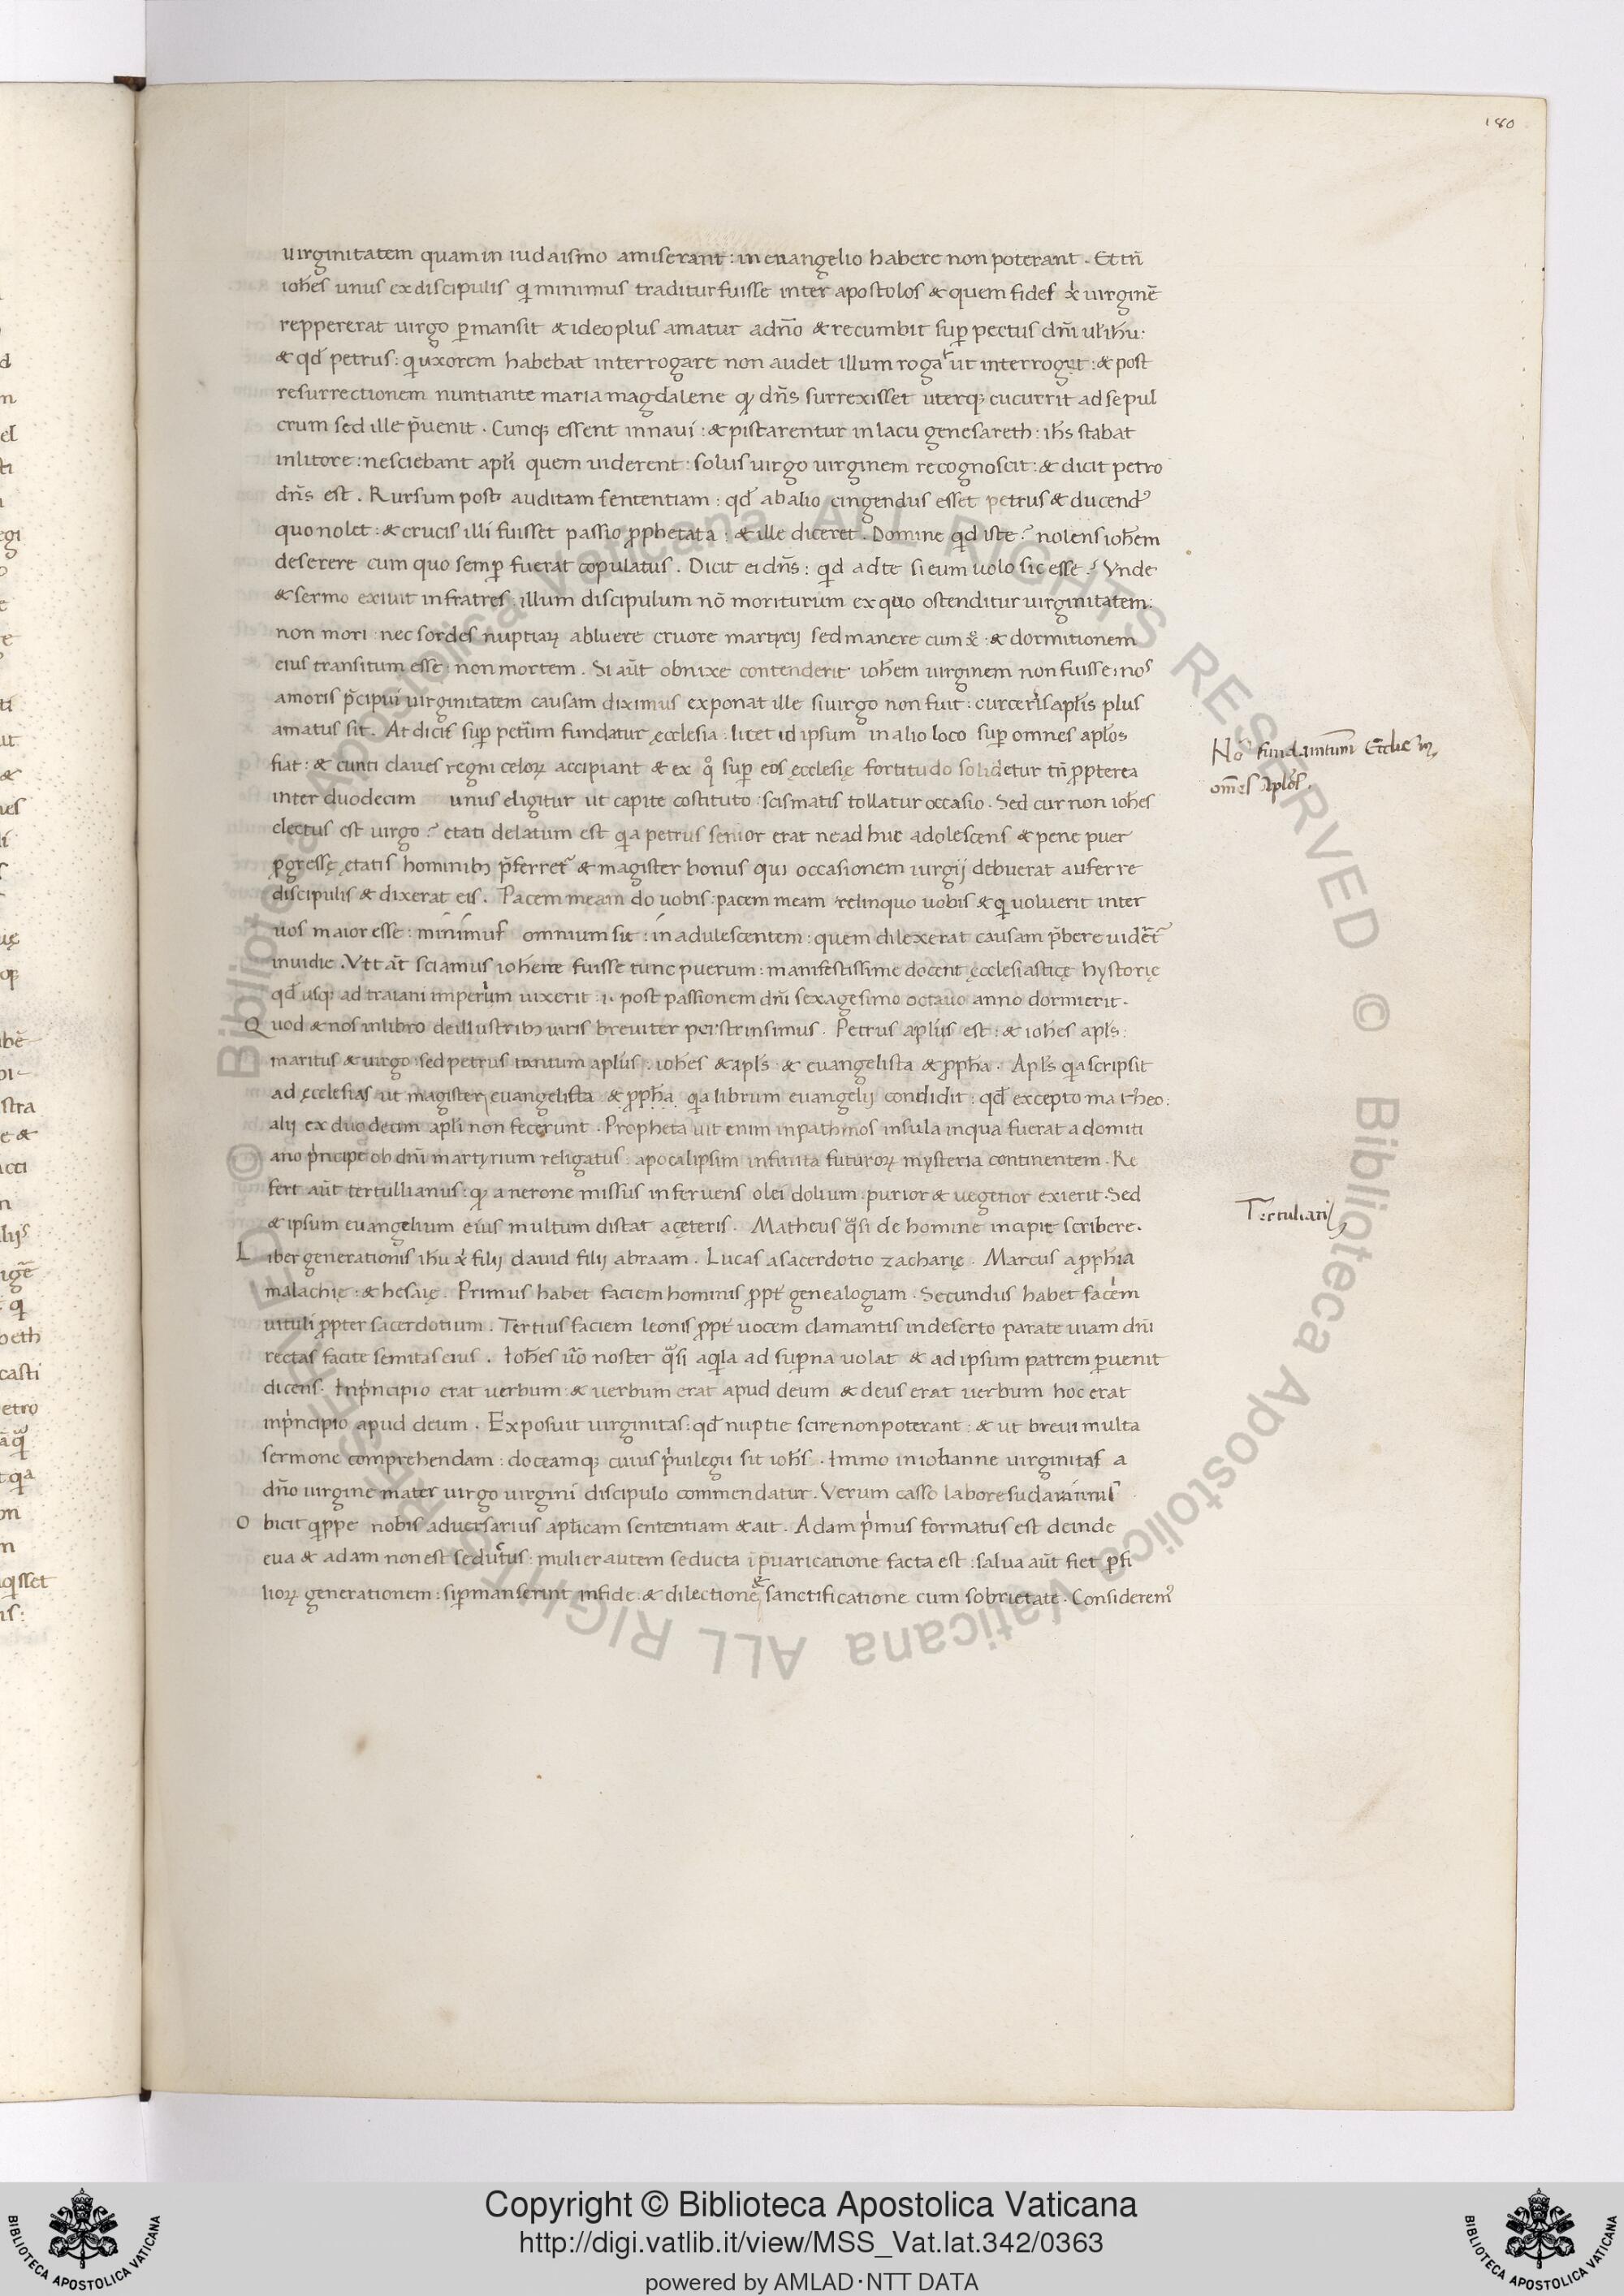 180
uirginitatem quam in iudaismo amiserant : in euangelio habere non poterant . Et tn̄
ioh̄es unus ex discipulis qi minimus traditur fuisse inter apostolos & quem fides xp̄i uirginē
reppererat uirgo ꝑmansit & ideo plus amatur a dn̄o & recumbit suꝑ pectus dn̄i ul ih̄u :
& qd̄ petrus : qi uxorem habebat interrogare non audet illum rogar̄ ut interroget : & post
resurrectionem nuntiante maria magdalene qꝫ dn̄s surrexisset uterqꝫ cucurrit ad sepul
crum sed ille p̄uenit . Cunqꝫ essent in naui : & piscarentur in lacu genesareth : ih̄s stabat
in litore : nesciebant apl̄i quem uiderent : solus uirgo uirginem recognoscit : & dicit petro
dn̄s est . Rursum post auditam sententiam : qd̄ ab alio cingendus esset petrus & ducendꝰ
quo nollet : & crucis illi fuisset passio ꝓphetata : & ille diceret . Domine qid iste ? nolens ioh̄em
deserere cum quo semꝑ fuerat copulatus . Dicit ei dn̄s : qid ad te si eum uolo sic esse ? Vnde
& sermo exiuit in fratres : illum discipulum nō moriturum ex quo ostenditur uirginitatem :
non mori : nec sordes nuptiaꝝ abluere cruore martyrij sed manere cum xp̄o : & dormitionem
eius transitum esse : non mortem . Si aūt obnixe contenderit ioh̄em uirginem non fuisse : nos
amoris p̄cipui uirginitatem causam diximus exponat ille si uirgo non fuit : cur ceteris apl̄is plus
amatus sit . At dicis suꝑ petrum fundatur ęcclesia : licet id ipsum in alio loco suꝑ omnes apl̄os
fiat : & cunti claues regni celoꝝ accipiant & ex qo suꝑ eos ęcclesię fortitudo solidetur tn̄ ꝓpterea
inter duodecim unus eligitur ut capite costituto : scismatis tollatur occasio . Sed cur non ioh̄es
electus est uirgo ? etati delatum est qia petrus senior erat ne adhuc adolescens & pene puer
ꝓgressę ętatis hominibꝫ p̄ferretꝰ & magister bonus qui occasionem iurgij debuerat auferre
discipulis & dixerat eis . Pacem meam do uobis : pacem meam relinquo uobis & qi uoluerit inter
uos maior esse : minimus omnium sit : in adulescentem : quem dilexerat causam p̄bere uideretꝰ
inuidie . Vt aūt sciamus iohēne fuisse tunc puerum : manifestissime docent ęcclesiasticę hystorię
qd̄ usqꝫ ad traiani imperium uixerit .i. post passionem dn̄i sexagesimo octauo anno dormierit .
Quod & nos in libro de illustribꝫ uiris breuiter perstrinsimus . Petrus apl̄us est : & ioh̄es apl̄s :
maritus & uirgo : sed petrus tantum apl̄us . ioh̄es & apl̄s : & euangelista & ꝓph̄a . Apl̄s qia scripsit
ad ęcclesias ut magister euangelista & ꝓph̄a qia librum euangelij condidit : qd̄ excepto matheo :
alij ex duodecim apl̄i non fecerunt . Propheta uit enim in pathmos insula in qua fuerat a domiti
ano p̄ncipe ob dn̄i martyrium religatus : apocalipsim infinita futuroꝝ mysteria continentem . Re
fert aūt tertullianus : qꝫ a nerone missus in feruens olei dolium : purior & uegetior exierit . Sed
& ipsum euangelium eius multum distat a ceteris . Matheus qasi de homine incipit scribere .
Liber generationis ih̄u xp̄i filij dauid filij abraam . Lucas a sacerdotio zacharię . Marcus a ꝓph̄ia
malachię : & hesaię . Primus habet faciem hominis ꝓpt̄ genealogiam . Secundus habet faciem
uituli ꝓpter sacerdotium . Tertius faciem leonis ꝓpt̄ uocem clamantis in deserto parate uiam dn̄i
rectas facite semitas eius . Ioh̄es ūo noster qasi aqila ad suꝑna uolat & ad ipsum patrem ꝑuenit
dicens . In p̄ncipio erat uerbum & uerbum erat apud deum & deus erat uerbum hoc erat
in p̄ncipio apud deum . Exposuit uirginitas : qd̄ nuptie scire non poterant : & ut breui multa
sermone comprehendam : doceamqꝫ cuius p̄uilegii sit ioh̄s . Immo in iohanne uirginitas a
dn̄o uirgine mater uirgo uirgini discipulo commendatur . Verum casso labore sudauimus
Obicit qippe nobis aduersarius apl̄icam sententiam & ait . Adam p̄mus formatus est deinde
eua & adam non est seductus : mulier autem seducta i p̄uaricatione facta est : salua aūt fiet ꝑ fi
lioꝝ generationem : si ꝑmanserint in fide & dilectione & sanctificatione cum sobrietate . Consideremꝰ
No fundamtum Ecclie
om̄es Aplos .
Tertuliani
Copyright © Biblioteca Apostolica Vaticana
http://digi.vatlib.it/view/MSS_Vat.lat.342/0363
powered by AMLAD·NTT DATA
BIBLIOTECA APOSTOLICA VATICANA
BIBLIOTECA APOSTOLICA VATICANA
© Biblioteca Apostolica Vaticana ALL RIGHTS RESERVED © Biblioteca Apostolica Vaticana ALL RIGHTS RESERVED